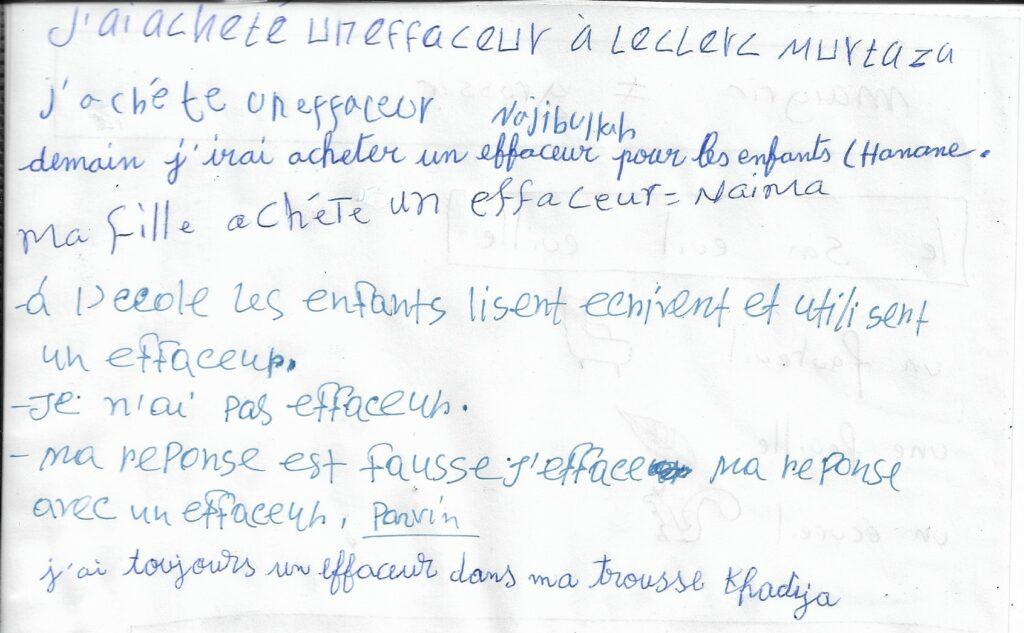 J'ai acheté un effaceur à Leclerc Murtaza
j'achéte un effaceur Najibullah
demain j'irai acheter un effaceur pour les enfants (Hanane.
ma fille achéte un effaceur = Naima
-á l'ecole les enfants lisent ecrivent et utilisent
un effaceur.
-Je n'ai pas effaceur.
- ma reponse est fausse. j'efface ma reponse
avec un effaceur, Parvin
j'ai toujours un effaceur dans ma trousse Khadija